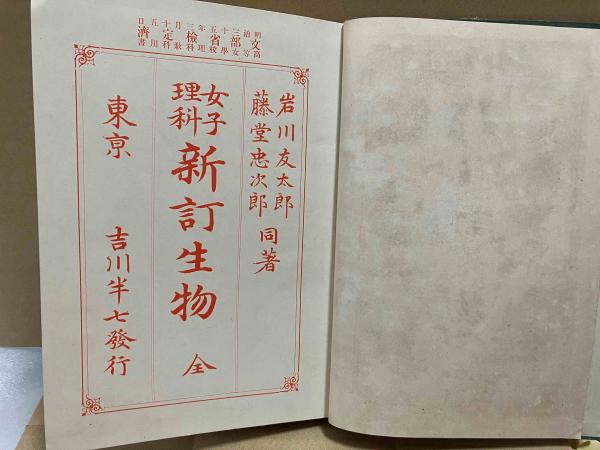 明治三十五年三月十五日
文部省檢定濟
高等女學校理科敎科用書
岩川友太郎
藤堂忠次郎
同著
女子
理科
新訂生物 全
東京 吉川半七發行